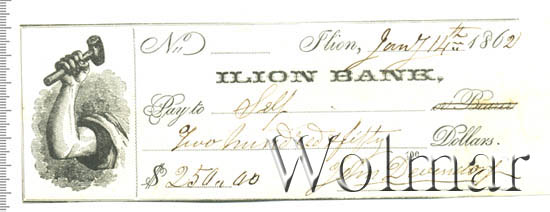 No. Ilion, Jany 14th 1862
ILION BANK,
Pay to Self or Bearer
Two hundred fifty 100 Dollars.
$ 250.00 John
Wolmar